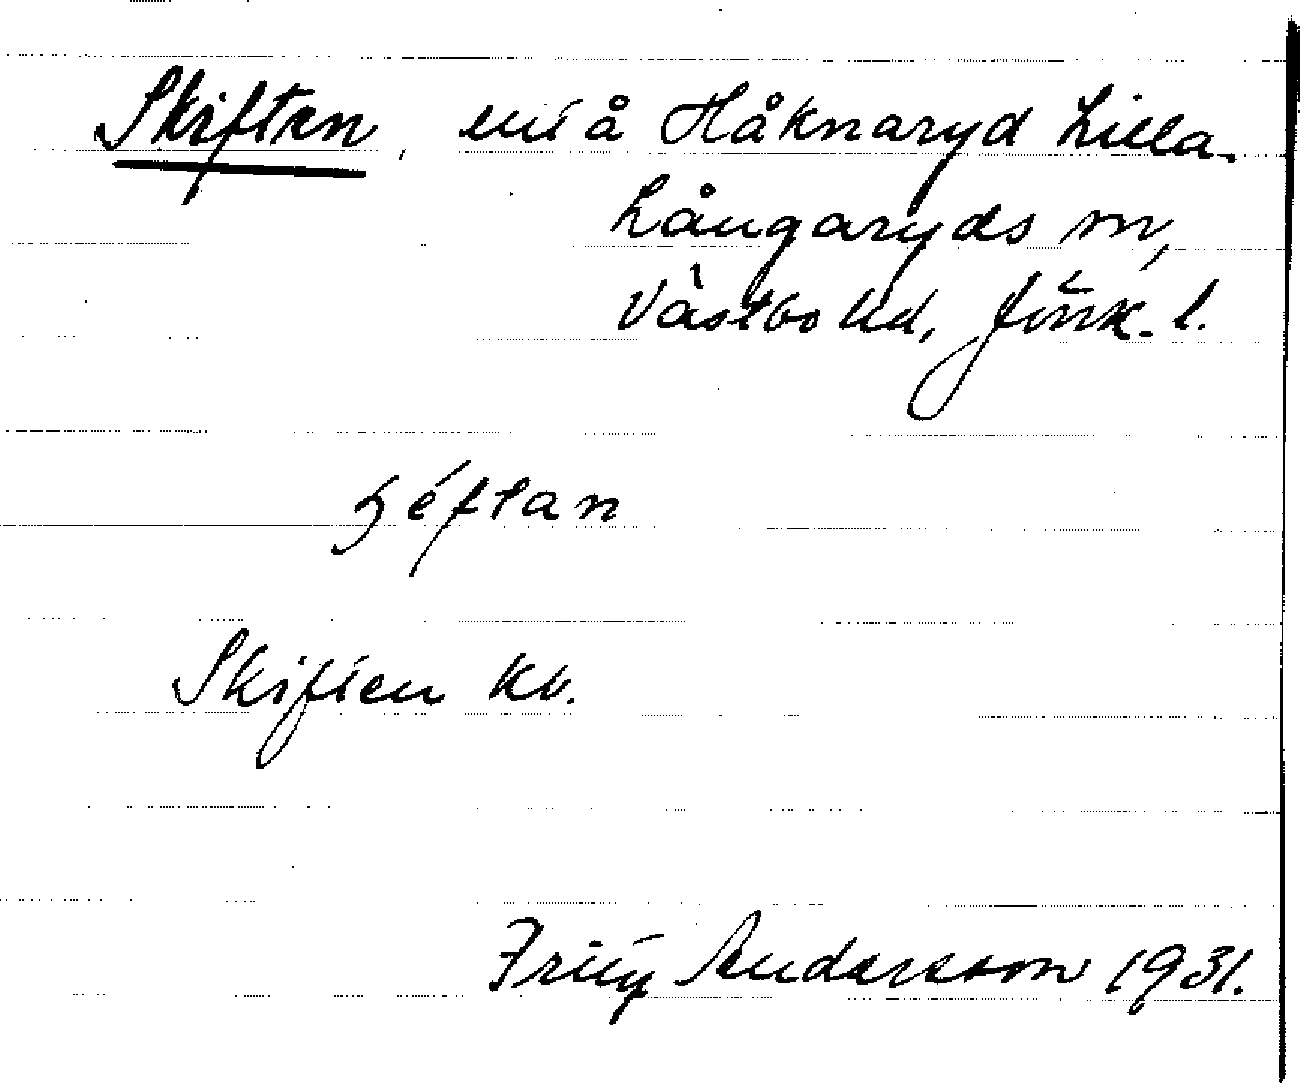 Skiften, utå Håknaryd Lilla.
Långaryds sn,
Västbo hd, Jönk. l.
ʃéftan
Skiften kv.
Fritz Andersson 1931.